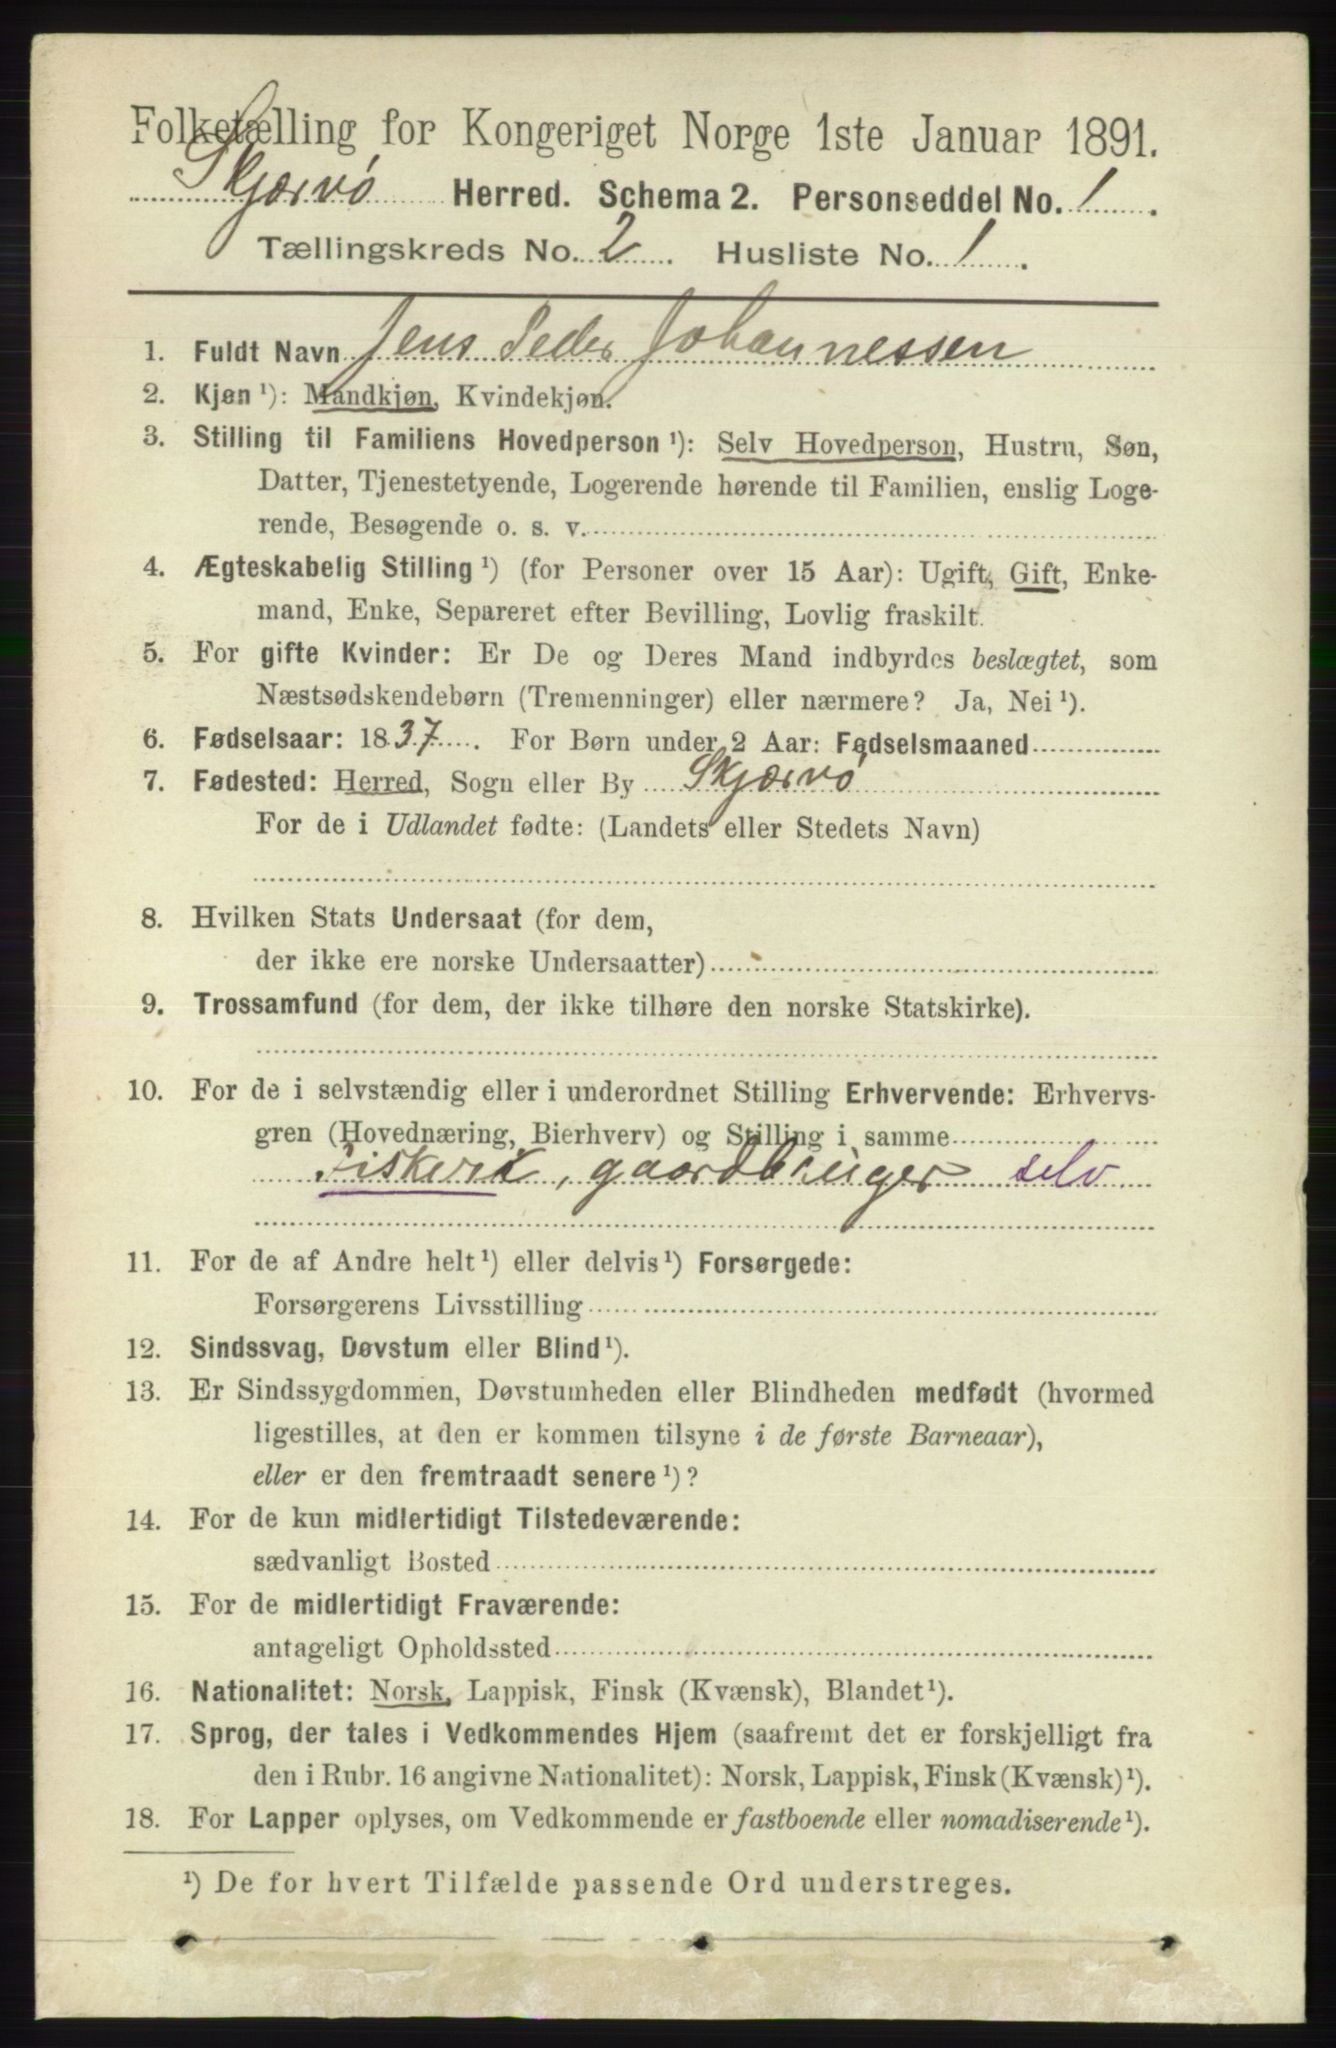 Folketælling for Kongeriget Norge 1ste Januar 1891.
Skjærvø Herred. Schema 2. Personseddel No. 1.
Tællingskreds No. 2. Husliste No. 1.
1. Fuldt Navn Jens Peder Johannessen
2. Kjøn ¹): Mandkjøn, Kvindekjøn.
3. Stilling til Familiens Hovedperson ¹): Selv Hovedperson, Hustru, Søn,
Datter, Tjenestetyende, Logerende hørende til Familien, enslig Loge-
rende, Besøgende o. s. v.
4. Ægteskabelig Stilling ¹) (for Personer over 15 Aar): Ugift, Gift, Enke-
mand, Enke, Separeret efter Bevilling, Lovlig fraskilt.
5. For gifte Kvinder: Er De og Deres Mand indbyrdes beslægtet, som
Næstsødskendebørn (Tremenninger) eller nærmere? Ja, Nei ¹).
6. Fødselsaar: 1837. For Børn under 2 Aar: Fødselsmaaned
7. Fødested: Herred, Sogn eller By Skjærvø
For de i Udlandet fødte: (Landets eller Stedets Navn)
8. Hvilken Stats Undersaat (for dem,
der ikke ere norske Undersaatter)
9. Trossamfund (for dem, der ikke tilhøre den norske Statskirke).
10. For de i selvstændig eller i underordnet Stilling Erhvervende: Erhvervs-
gren (Hovednæring, Bierhverv) og Stilling i samme
Fiskeri, gaardbruger selv
11. For de af Andre helt ¹) eller delvis ¹) Forsørgede:
Forsørgerens Livsstilling
12. Sindssvag, Døvstum eller Blind ¹).
13. Er Sindssygdommen, Døvstumheden eller Blindheden medfødt (hvormed
ligestilles, at den er kommen tilsyne i de første Barneaar),
eller er den fremtraadt senere ¹)?
14. For de kun midlertidigt Tilstedeværende:
sædvanligt Bosted
15. For de midlertidigt Fraværende:
antageligt Opholdssted
16. Nationalitet: Norsk, Lappisk, Finsk (Kvænsk), Blandet ¹).
17. Sprog, der tales i Vedkommendes Hjem (saafremt det er forskjelligt fra
den i Rubr. 16 angivne Nationalitet): Norsk, Lappisk, Finsk (Kvænsk) ¹).
18. For Lapper oplyses, om Vedkommende er fastboende eller nomadiserende ¹).
¹) De for hvert Tilfælde passende Ord understreges.